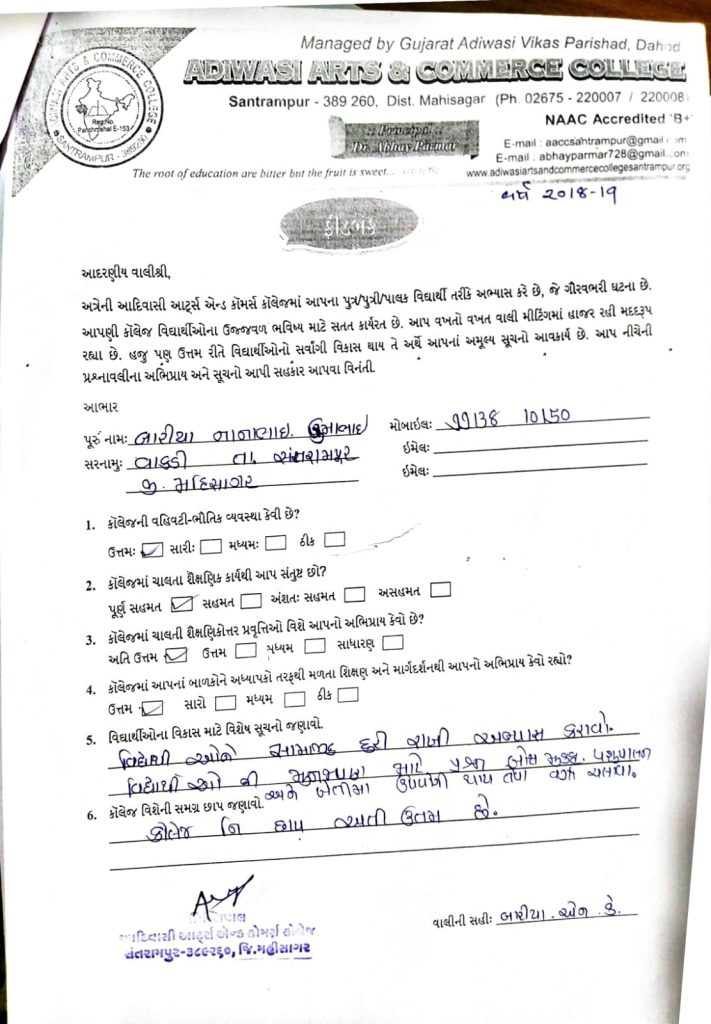 Managed by Gujarat Adiwasi Vikas Parishad, Dahod
ADIWASI ARTS & COMMERCE COLLEGE
Santrampur - 389 260, Dist. Mahisagar (Ph. 02675 - 220007 / 220008)
NAAC Accredited 'B+'
:: Principal ::
Dr. Abhay Parmar
E-mail : aaccsahtrampur@gmail.com
E-mail : abhayparmar728@gmail.com
www.adiwasiartsandcommercecollegesantrampur.org
ADIWASI ARTS & COMMERCE COLLEGE
Reg.No.
Panchmahal E-153
SANTRAMPUR - 389260
The root of education are bitter but the fruit is sweet...
વર્ષ ૨૦18-19
ફીડબેક
આદરણીય વાલીશ્રી,
અત્રેની આદિવાસી આર્ટ્સ એન્ડ કૉમર્સ કૉલેજમાં આપના પુત્ર/પુત્રી/પાલક વિદ્યાર્થી તરીકે અભ્યાસ કરે છે, જે ગૌરવભરી ઘટના છે.
આપણી કૉલેજ વિદ્યાર્થીઓના ઉજ્જવળ ભવિષ્ય માટે સતત કાર્યરત છે. આપ વખતો વખત વાલી મીટિંગમાં હાજર રહી મદદરૂપ
રહ્યા છે. હજુ પણ ઉત્તમ રીતે વિદ્યાર્થીઓનો સર્વાંગી વિકાસ થાય તે અર્થે આપનાં અમૂલ્ય સૂચનો આવકાર્ય છે. આપ નીચેની
પ્રશ્નાવલીના અભિપ્રાય અને સૂચનો આપી સહકાર આપવા વિનંતી.
આભાર
પૂરું નામઃ બારીયા નાનાભાઇ મોબાઇલઃ 99138 10150
સરનામુઃ વાકડી તા. સંતરામપુર ઇમેલઃ
જી. મહિસાગર ઇમેલઃ
1. કૉલેજની વહિવટી-ભૌતિક વ્યવસ્થા કેવી છે?
ઉત્તમઃ ✓ સારીઃ મધ્યમઃ ઠીક
2. કૉલેજમાં ચાલતા શૈક્ષણિક કાર્યથી આપ સંતુષ્ટ છો?
પૂર્ણ સહમત ✓ સહમત અંશતઃ સહમત અસહમત
3. કૉલેજમાં ચાલતી શૈક્ષણિકોત્તર પ્રવૃત્તિઓ વિશે આપનો અભિપ્રાય કેવો છે?
અતિ ઉત્તમ ✓ ઉત્તમ મધ્યમ સાધારણ
4. કૉલેજમાં આપનાં બાળકોને અધ્યાપકો તરફથી મળતા શિક્ષણ અને માર્ગદર્શનથી આપનો અભિપ્રાય કેવો રહ્યો?
ઉત્તમ ✓ સારો મધ્યમ ઠીક
5. વિદ્યાર્થીઓના વિકાસ માટે વિશેષ સૂચનો જણાવો.
વિદ્યાર્થી ઓને સામાજીક દુરી રાખી અભ્યાસ કરાવો.
વિદ્યાર્થી ઓ ની મુંજવણ માટે પ્રશ્ન બોક્ષ મુકવુ. પશુપાલન
અને ખેતીમા ઉપયોગી થાય તેવા વર્ગ ચલાવા.
6. કૉલેજ વિશેની સમગ્ર છાપ જણાવો.
કોલેજ નિ છાપ અતી ઉતમ છે.
વાલીની સહીઃ બારીયા. એન. કે.
આદિવાસી આર્ટ્સ એન્ડ કોમર્સ કોલેજ
સંતરામપુર-૩૮૯૨૬૦, જિ.મહીસાગર